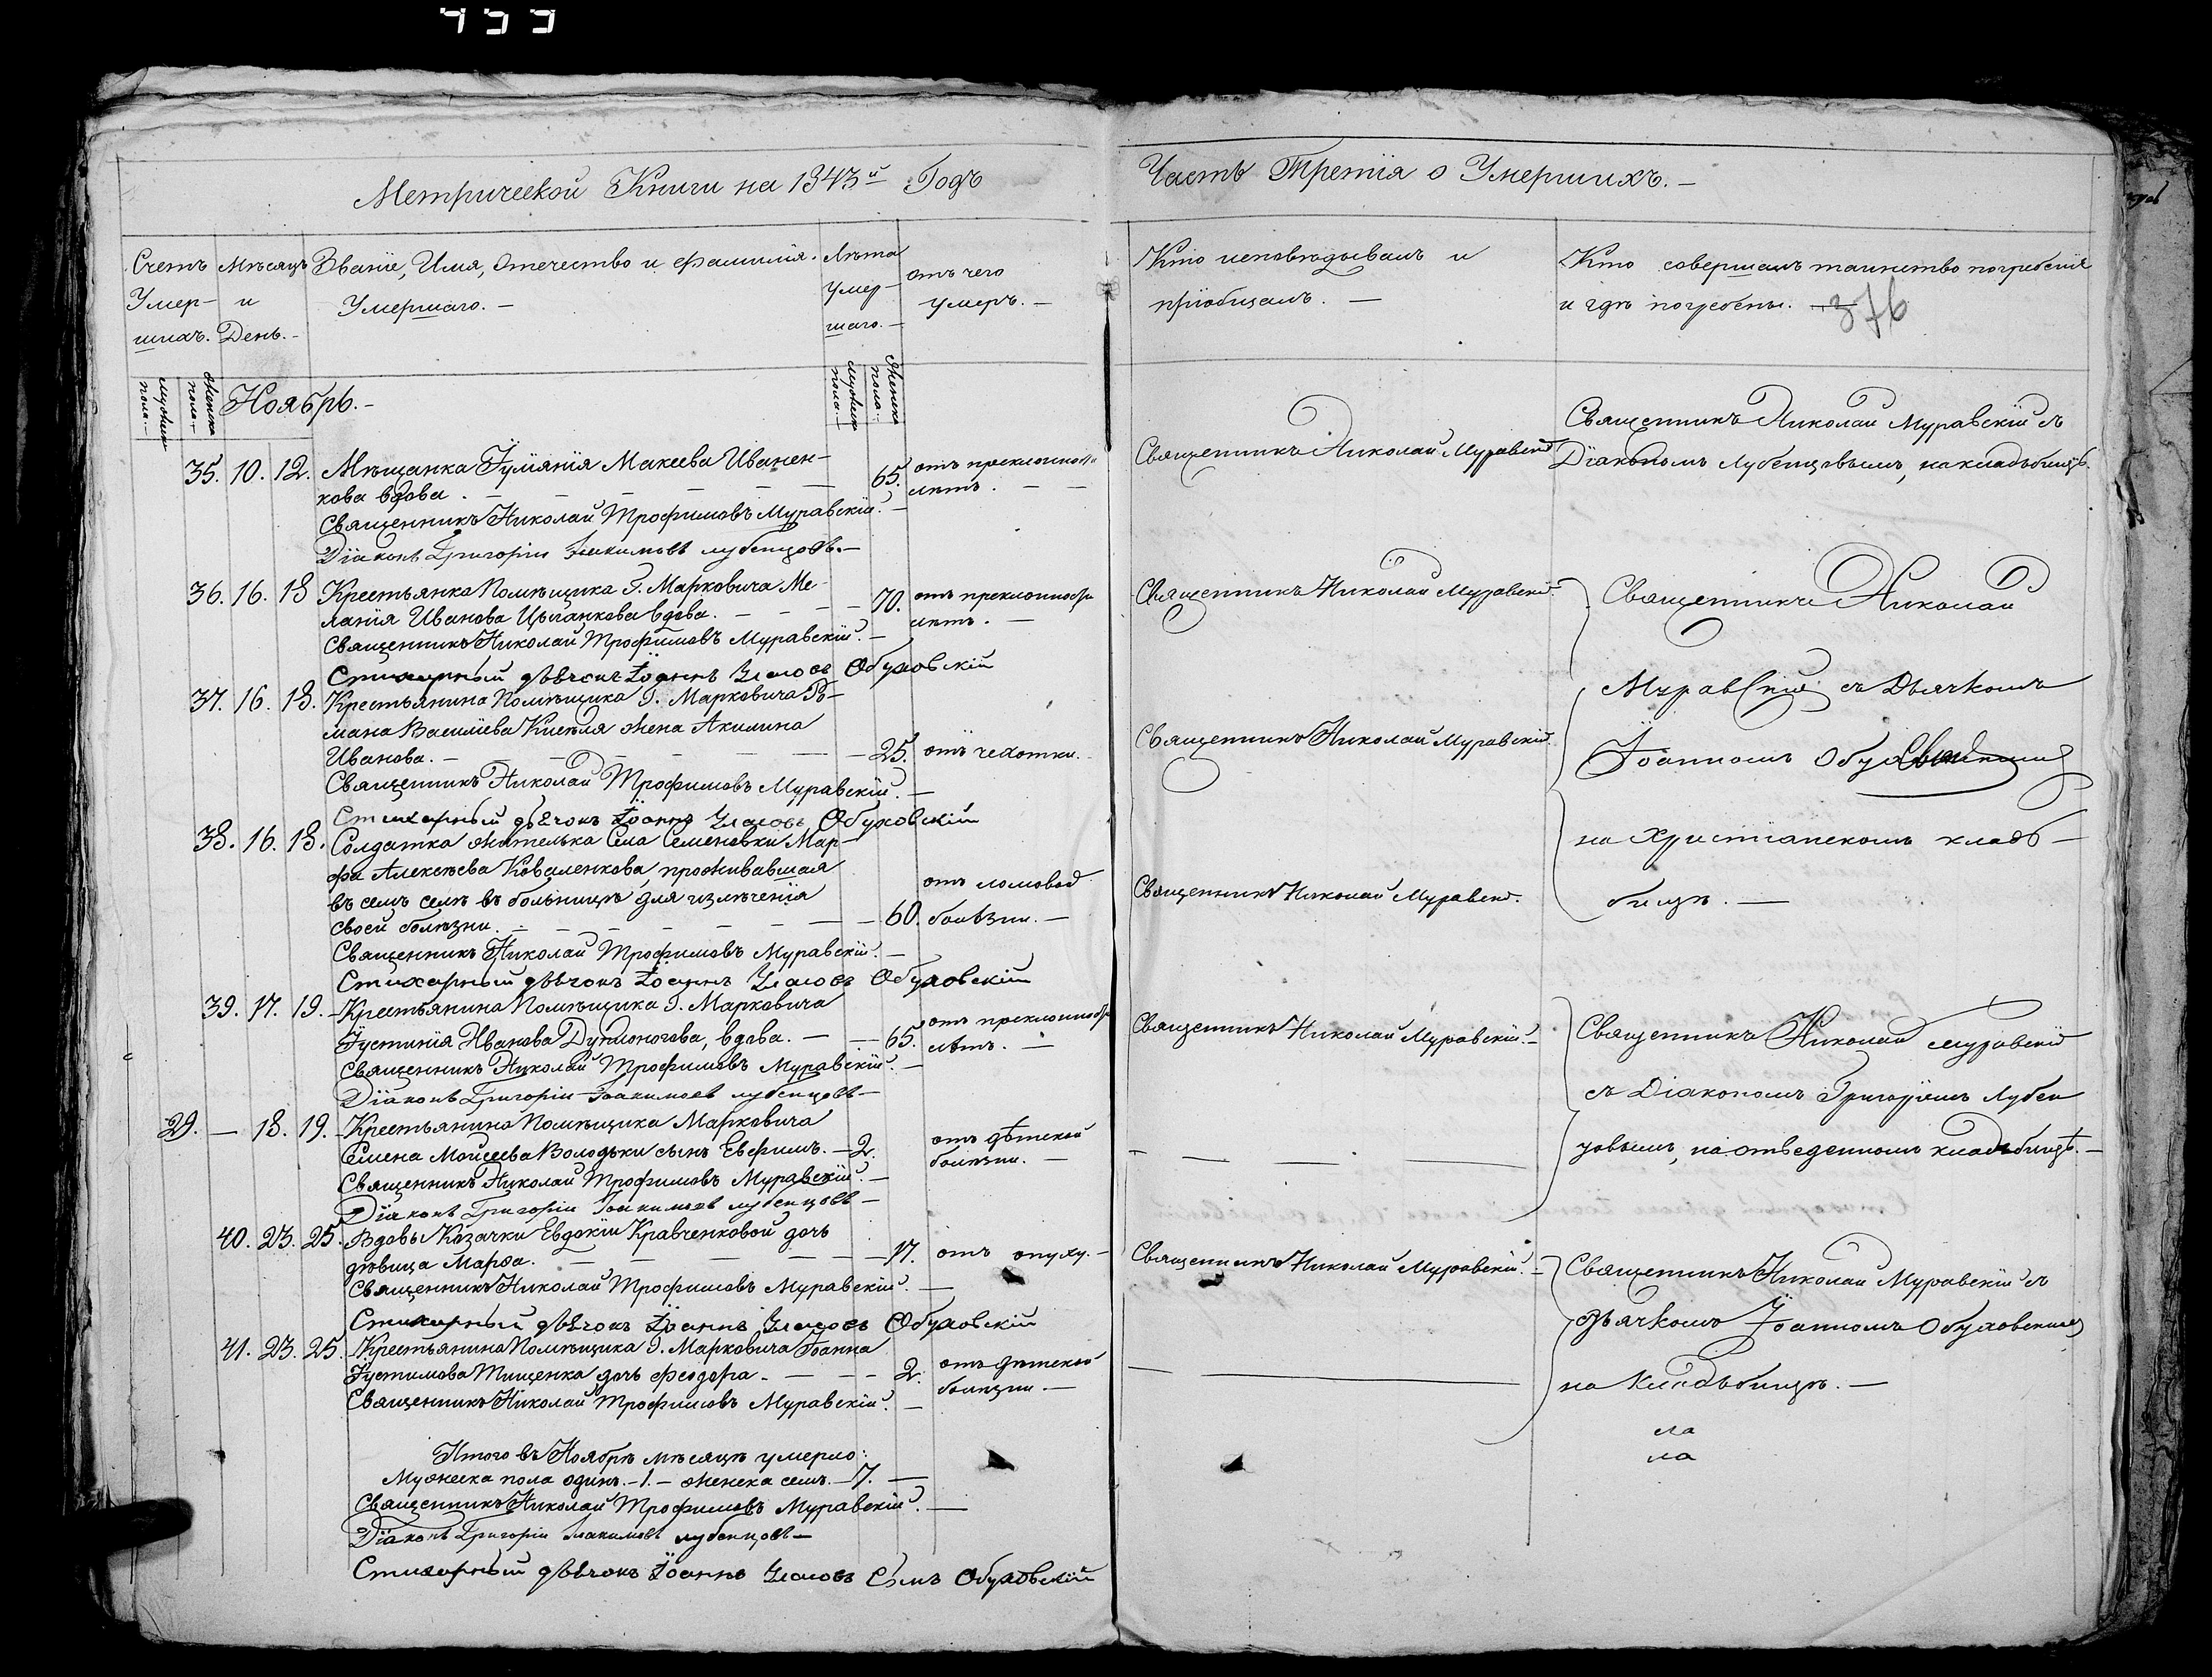 Метрической Книги на 1843й Годъ
Часть Третія о Умершихъ. –
Счетъ Умер- шихъ.
Мѣсяцъ и День. –
Званіе, Имя, Отечество и фамилія Умершаго. –
Лѣта умер- шаго. –
отъ чего умеръ. –
Кто исповѣдывалъ и
пріобщалъ. –
Кто совершалъ таинство погребенія
и гдѣ погребены. 376
мужеска пола. –
женска пола. –
Ноябрь. –
мужеска пола. –
женска пола. –
35. 10. 12. Мѣщанка Іуліянія Макеева Иванен-
кова вдова. – 65. отъ преклонности лѣтъ. –
Священникъ Николай Трофимовъ Муравскій. –
Діаконъ Григорій Іоакимовъ Лубенцовъ. –
Священникъ Николай Муравскій
Священникъ Николай Муравскій съ
Діакономъ Лубенцовымъ, на кладбищѣ.
36. 16. 18 Крестьянка Помѣщика Г. Марковича Ме-
ланія Иванова Цыганкова вдова. – 70. отъ преклонности лѣтъ. –
Священникъ Николай Трофимовъ Муравскій. –
Стихарный дьячокъ Іоаннъ Власовъ Обуховскій
Священникъ Николай Муравскій.
37. 16. 18. Крестьянина Помѣщика Г. Марковича Ро-
мана Васильева Киселя жена Акилина
Иванова. – 25. отъ чехотки.
Священникъ Николай Трофимовъ Муравскій. –
Стихарный дьячокъ Іоаннъ Власовъ Обуховскій
Священникъ Николай Муравскій.
38. 16. 18. Солдатка жителька Села Семеновки Мар-
фа Алексѣева Коваленкова, проживавшая
въ семъ селѣ въ больницѣ для излѣченія
своей болѣзни. – 60. отъ ломовой болѣзни. –
Священникъ Николай Трофимовъ Муравскій. –
Стихарный дьячокъ Іоаннъ Власовъ Обуховскій
Священникъ Николай Муравскій.
Священникъ Николай
Муравскій съ Дьячкомъ
Іоанномъ Обуховскимъ
на Христіанскомъ кладб-
бищѣ. –
39. 17. 19. Крестьянина Помѣщика Г. Марковича
Іустинія Иванова Дуплоногова, вдова. – 65. отъ преклонности лѣтъ. –
Священникъ Николай Трофимовъ Муравскій. –
Діаконъ Григорій Іоакимовъ Лубенцовъ –
Священникъ Николай Муравскій. –
29. – 18. 19. Крестьянина Помѣщика Марковича
Семена Моисеева Володьки сынъ Евфимъ. – 2. отъ дѣтской болѣзни. –
Священникъ Николай Трофимовъ Муравскій. –
Діаконъ Григорій Іоакимовъ Лубенцовъ –
Священникъ Николай Муравскій
съ Діакономъ Григоріемъ Лубен
цовымъ, на отведенномъ кладьбищѣ. –
40. 23. 25. Вдовы Козачки Евдокіи Кравченковой дочь
дѣвица Марфа. – 17. отъ опуху. –
Священникъ Николай Трофимовъ Муравскій. –
Стихарный дьячокъ Іоаннъ Власовъ Обуховскій
Священникъ Николай Муравскій. –
41. 23. 25. Крестьянина Помѣщика Г. Марковича Іоанна
Іустимова Тищенка дочь Феодора. – 2. отъ дѣтской болѣзни. –
Священникъ Николай Трофимовъ Муравскій. –
Священникъ Николай Муравскій съ
дьячкомъ Іоанномъ Обуховскимъ
на Кладьбищѣ. –
Итого въ Ноябрѣ мѣсяцѣ умерло:
Мужеска пола одинъ. – 1. – женска семь. – 7. –
Священникъ Николай Трофимовъ Муравскій. –
Діаконъ Григорій Іоакимовъ Лубенцовъ –
Стихарный дьячокъ Іоаннъ Власовъ Сынъ Обуховскій